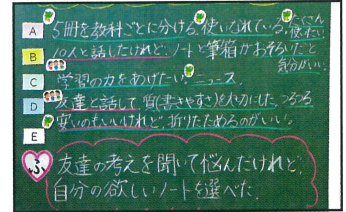 A 5冊を教科ごとに分ける。使いなれている。たくさん使いたい
B 10人と話したけれど、ノートと筆箱がおそろいだと気分がいい。
C 学習の力をあげたい。ニュース。
D 友達と話して質(書きやすさ)を大切にした。つるつる
安いのもいいけれど、折りたためるのがいい。
E
ふ 友達の考えを聞いて悩んだけれど、
自分の欲しいノートを選べた。